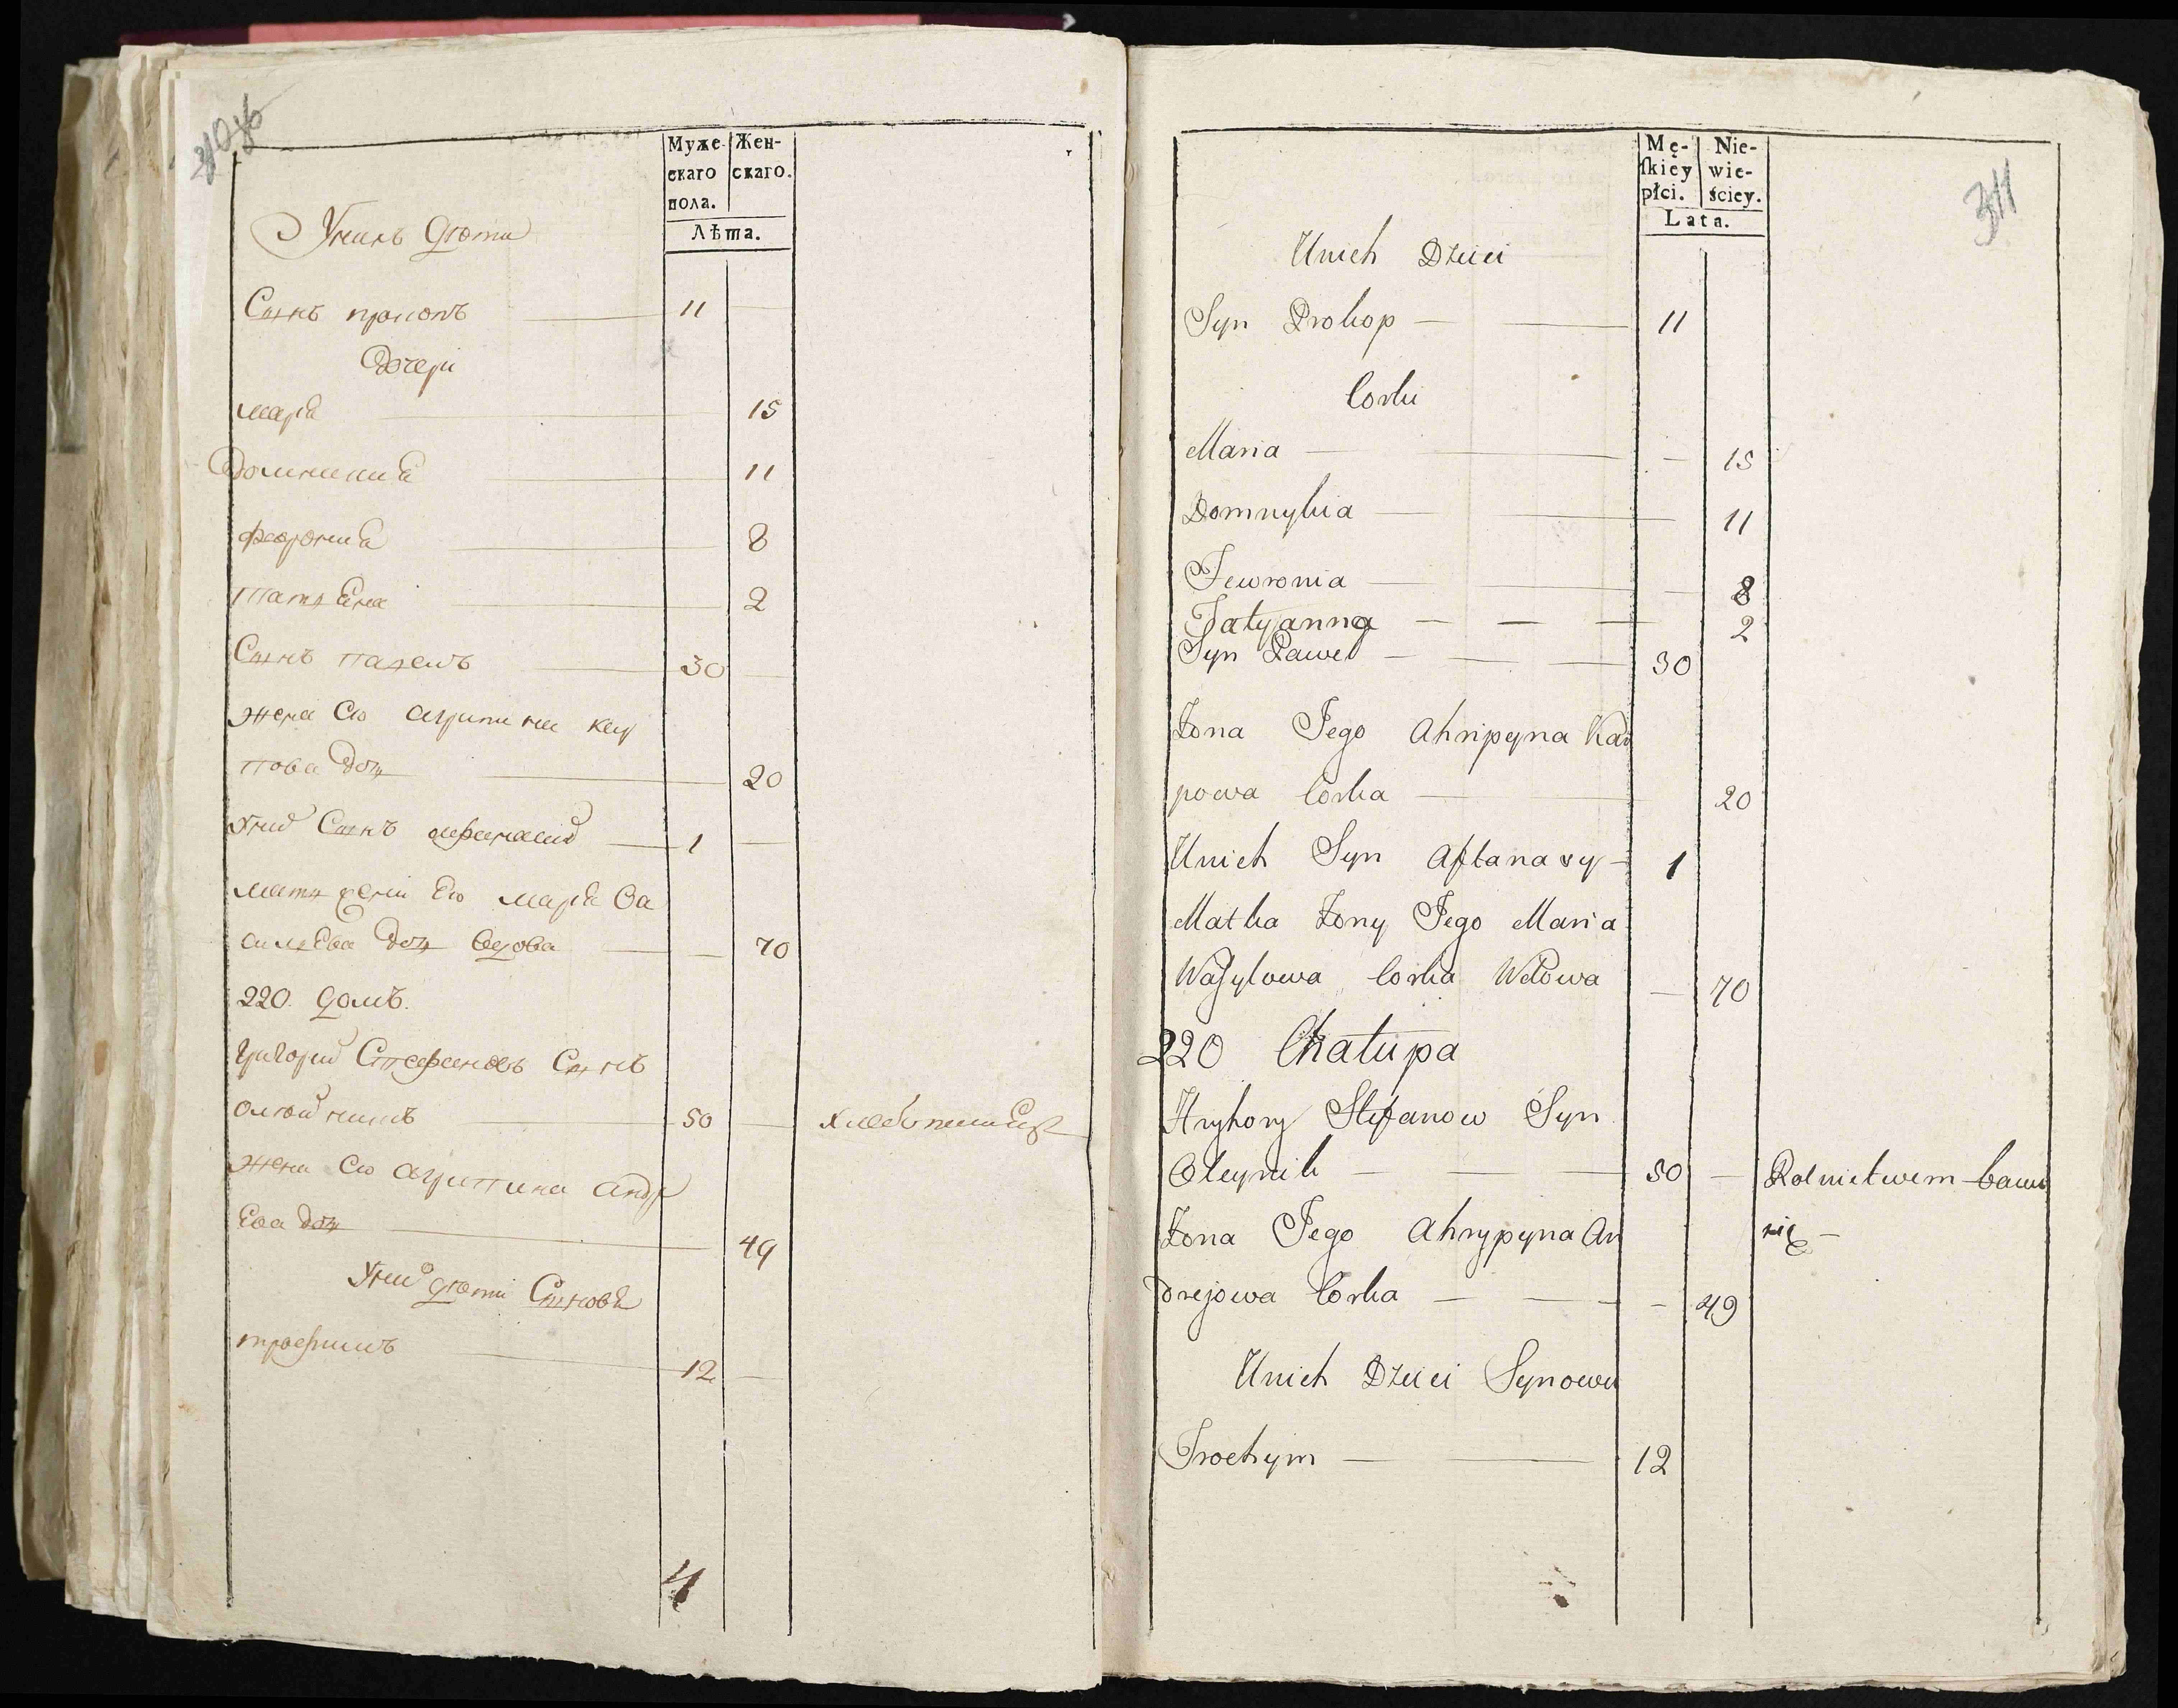 Муже-
скаго
пола.
Жен-
скаго.
Лѣта.
Унихъ Дѣти
Сынъ прокопъ 11
Дочери
Мария 15
Домникия 11
феврония 8
Татьяна 2
Сынъ павелъ 30
жена Его агрипина кар
пова дочь 20
Уних Сынъ афанасий 1
мать жени Его мария Ва
сильева дочь вдова 70
220. Домъ.
Григорий Стефановъ Сынъ
олейникъ 50 хлебопашец
жена Его агрипина андр
Ева дочь 49
Уних дѣти Синовя
трофимъ 12
4
311
Mę-
ſkiey
płci.
Nie-
wie-
ściey.
Lata.
Unich Dzieci
Syn Prokop 11
Corki
Maria 15
Domnykia 11
Fewronia 8
Tatyanna 2
Syn Pawel 30
Zona Jego Ahripyna Kar
powa Corka 20
Unich Syn Aftanasy 1
Matka Zony Jego Maria
Wasylowa Corka Wdowa 70
220 Chatupa
Hryhory Stefanow Syn
Oleynik 50 Rolnictwem bawi
się
Zona Jego Ahrypyna An
drejowa Corka 49
Unich Dzieci Synowie
Trochym 12